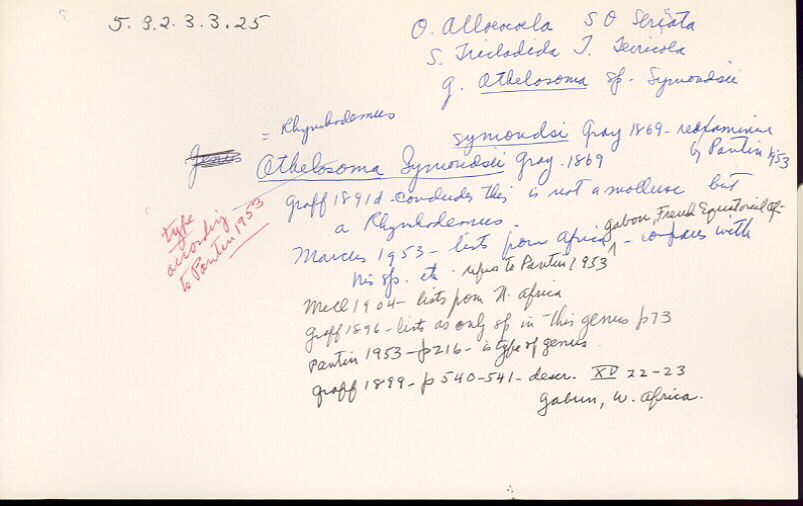 5.9.2.3.3.25
O. Alloeocoela S O Seriata
S. Tricladida T. Terricola
g. Othelosoma sp. Symondsii
= Rhynhodemus
symondsi Gray 1869 - reexamined
by Pantin 1953
Genus Othelosoma Symondsii Gray. 1869
Graff 1891d - concludes this is not a mollusc but
a Rhynhodemus
Gabon, French Equatorial Af-
Marcus 1953 - lists from Africa - compares with
his sp. etc. refers to Pantin 1953
Mell 1904 - lists from W. Africa
Graff 1896 - lists as only sp in this genus p73
Pantin 1953 - p216 - is type of genus.
Graff 1899 - p 540-541 - descr. XV 22-23
Gabun, W. Africa.
type
according
to Pantin 1953